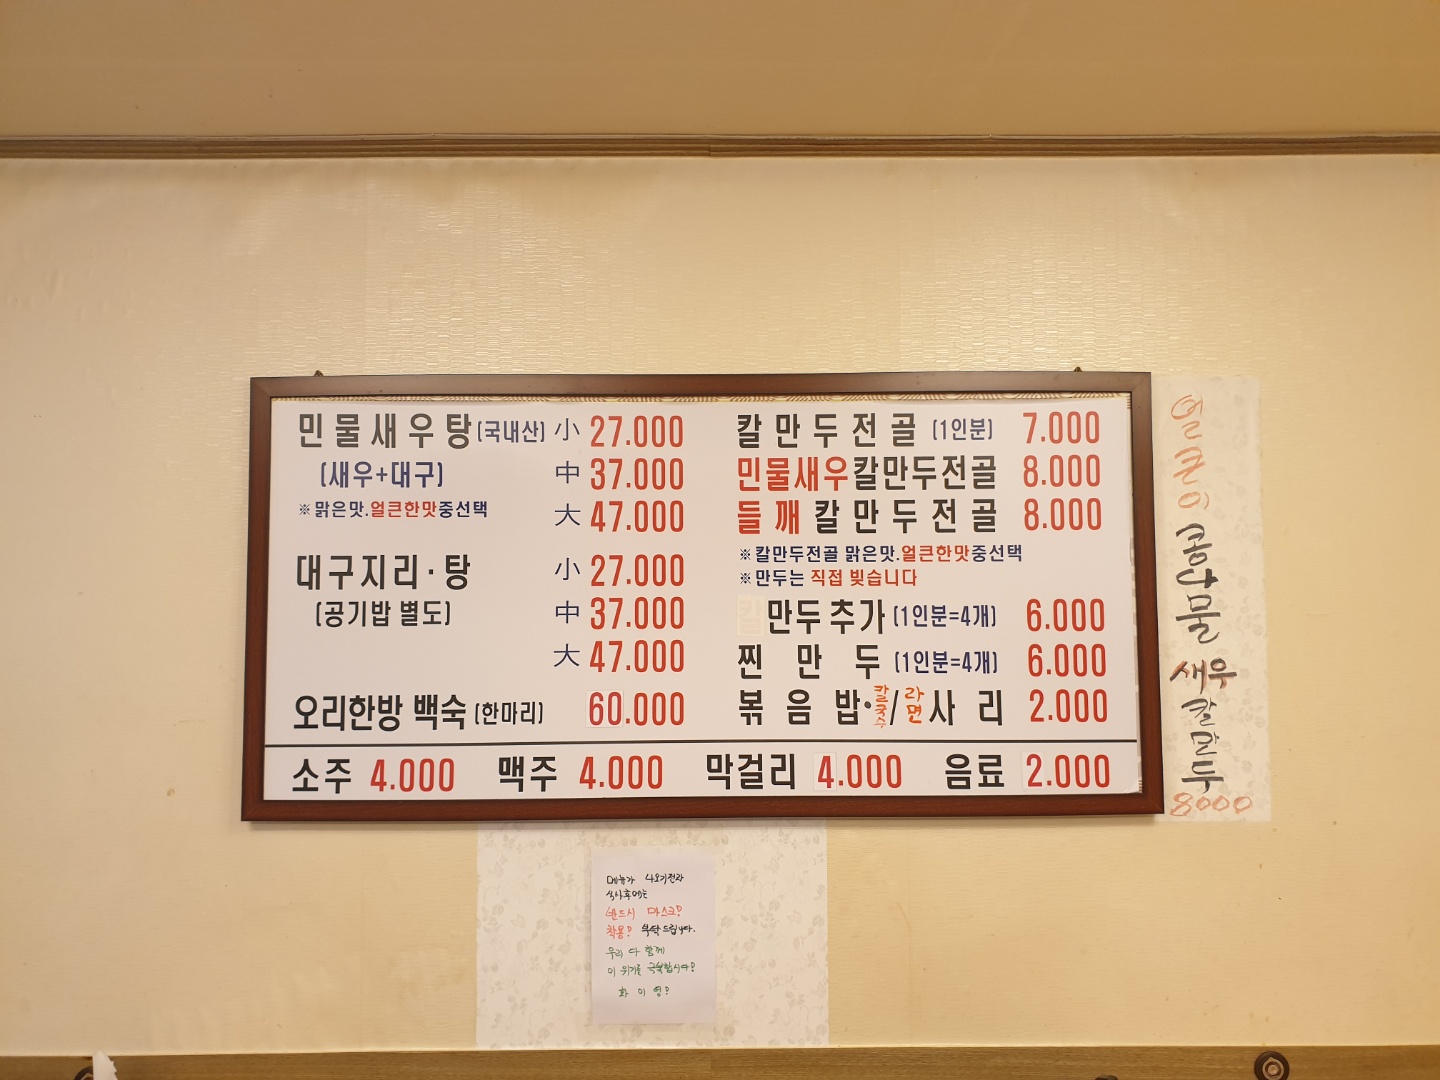 민물새우탕(국내산) 小 27.000
(새우+대구) 中 37.000
※맑은맛.얼큰한맛중선택 大 47.000
대구지리·탕 小 27.000
(공기밥 별도) 中 37.000
大 47.000
오리한방 백숙 (한마리) 60.000
칼만두전골 (1인분) 7.000
민물새우칼만두전골 8.000
들깨칼만두전골 8.000
※칼만두전골 맑은맛.얼큰한맛중선택
※만두는 직접 빚습니다
만두추가(1인분=4개) 6.000
찐만두(1인분=4개) 6.000
볶음밥·칼국수/라면사리 2.000
소주 4.000 맥주 4.000 막걸리 4.000 음료 2.000
얼큰이 콩나물 새우칼만두 8000
메뉴가 나오기전과
식사후에는
반드시 마스크!
착용! 부탁드립니다.
우리 다 함께
이 위기를 극복합시다!
화 이 링!